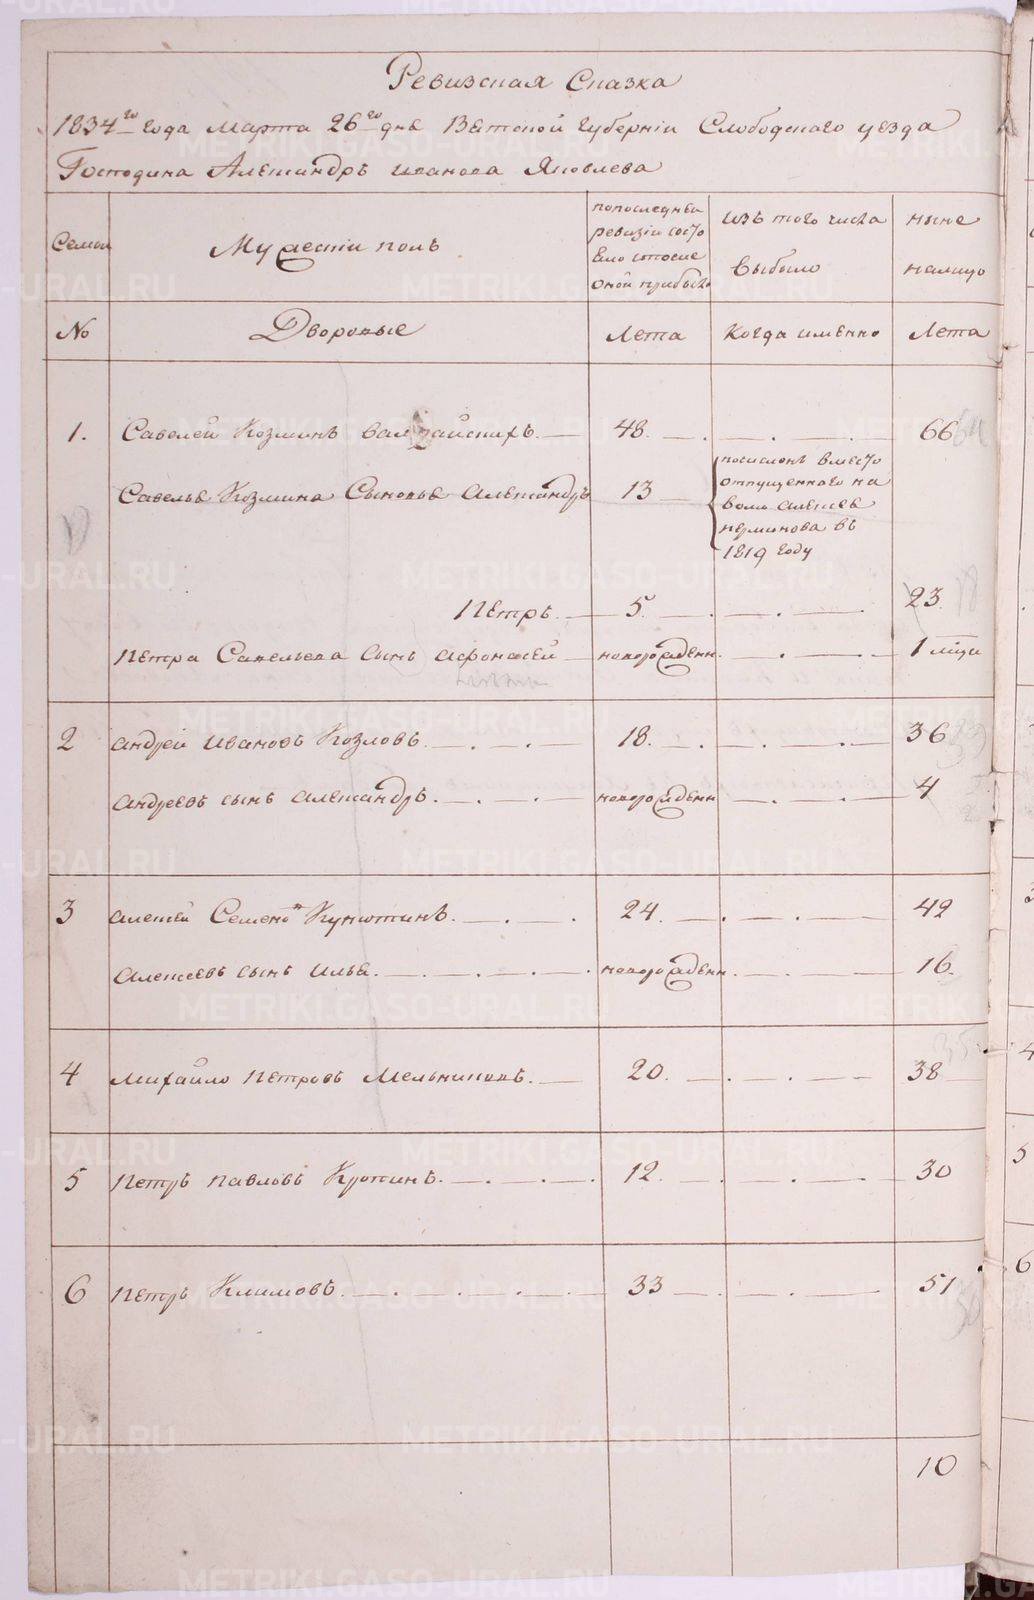 Ревизская Сказка
1834го года Марта 26го дня Вятской губернiи Слободского уезда
Господина Александръ иванова Яковлева
Семьи
Мужескiй полъ
попоследней
ревизiи состо
яло ипосле
оной прибыло
изъ того числа
выбыло
ныне
налицо
No
Дворовые
Лета
Когда именно
Лета
1. Савелей Козминъ 48. 66
Савелья Козмина Сыновья Александръ 13
посисленъ вместо
отпущенного на
волю Алексея
в
1819 году
Петръ. 5. 23
Петра Савельева Сынъ Афонасей новорожденн. 1 мцъ
2 Андрей Ивановъ Козловъ. 18. 36
Андреевъ сынъ Александръ. новорожденн 4
3 Алексей Семеновъ Кунютинъ. 24. 42
Алексеевъ сынъ Илья. новорожденн. 16.
4 Михайло Петровъ Мельниковъ. 20. 38
5 Петръ Павловъ Кропинъ. 12. 30
6 Петръ Климовъ. 33 51
10
METRIKI.GASO-URAL.RU